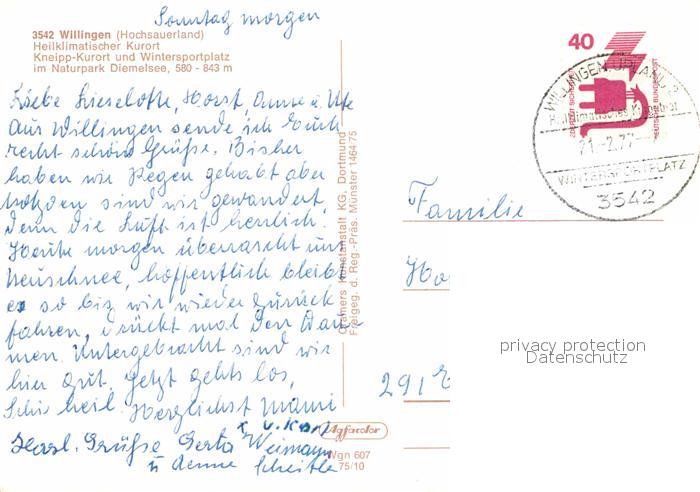 Sonntag morgen
3542 Willingen (Hochsauerland)
Heilklimatischer Kurort
Kneipp-Kurort und Wintersportplatz
im Naturpark Diemelsee, 580 - 843 m
Liebe Lieselotte, Horst, Anne u. Ute
Aus Willingen sende ich Euch
recht schöne Grüße. Bisher
haben wir Regen gehabt aber
trotzdem sind wir gewandert
denn die Luft ist herrlich!
Heute morgen überrascht uns
Neuschnee, hoffentlich bleibt
es so bis wir wieder zurück
fahren, drückt mal den Dau-
men. Untergebracht sind wir
hier gut. Jetzt gehts los,
Schi heil. Herzlichst Mami
u. Karl
Herzl. Grüße Gerta Weimann
u Aenne
Cramers Kunstanstalt KG, Dortmund
Freigeg. d. Reg.-Präs. Münster 1464/75
Agfacolor
Wgn 607
75/10
40
JEDERZEIT SICHERHEIT
DEUTSCHE BUNDESPOST
WILLINGEN, UPLAND
Heilklimatischer Kurort
21.-2.77
WINTERSPORTPLATZ
3542
Familie
Ho
291
privacy protection
Datenschutz